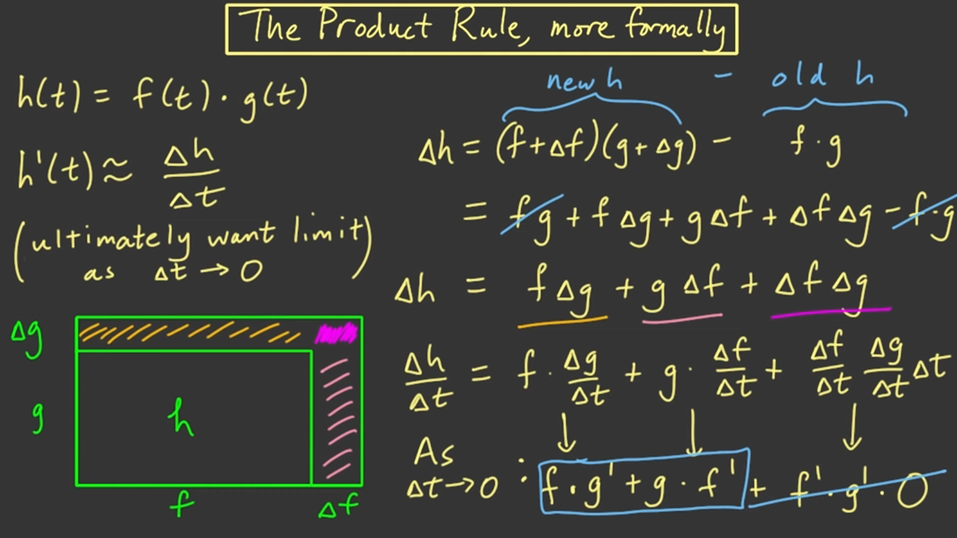 The Product Rule, more formally
h(t) = f(t) · g(t)
h'(t) ≈ Δh/Δt
(ultimately want limit
as Δt → 0)
new h - old h
Δh = (f+Δf)(g+Δg) - f·g
= fg + fΔg + gΔf + ΔfΔg - f·g
Δh = fΔg + gΔf + ΔfΔg
Δh/Δt = f · Δg/Δt + g · Δf/Δt + Δf/Δt Δg/Δt Δt
As
Δt → 0 : f·g' + g·f' + f'·g'·0
Δg
g
h
f
Δf